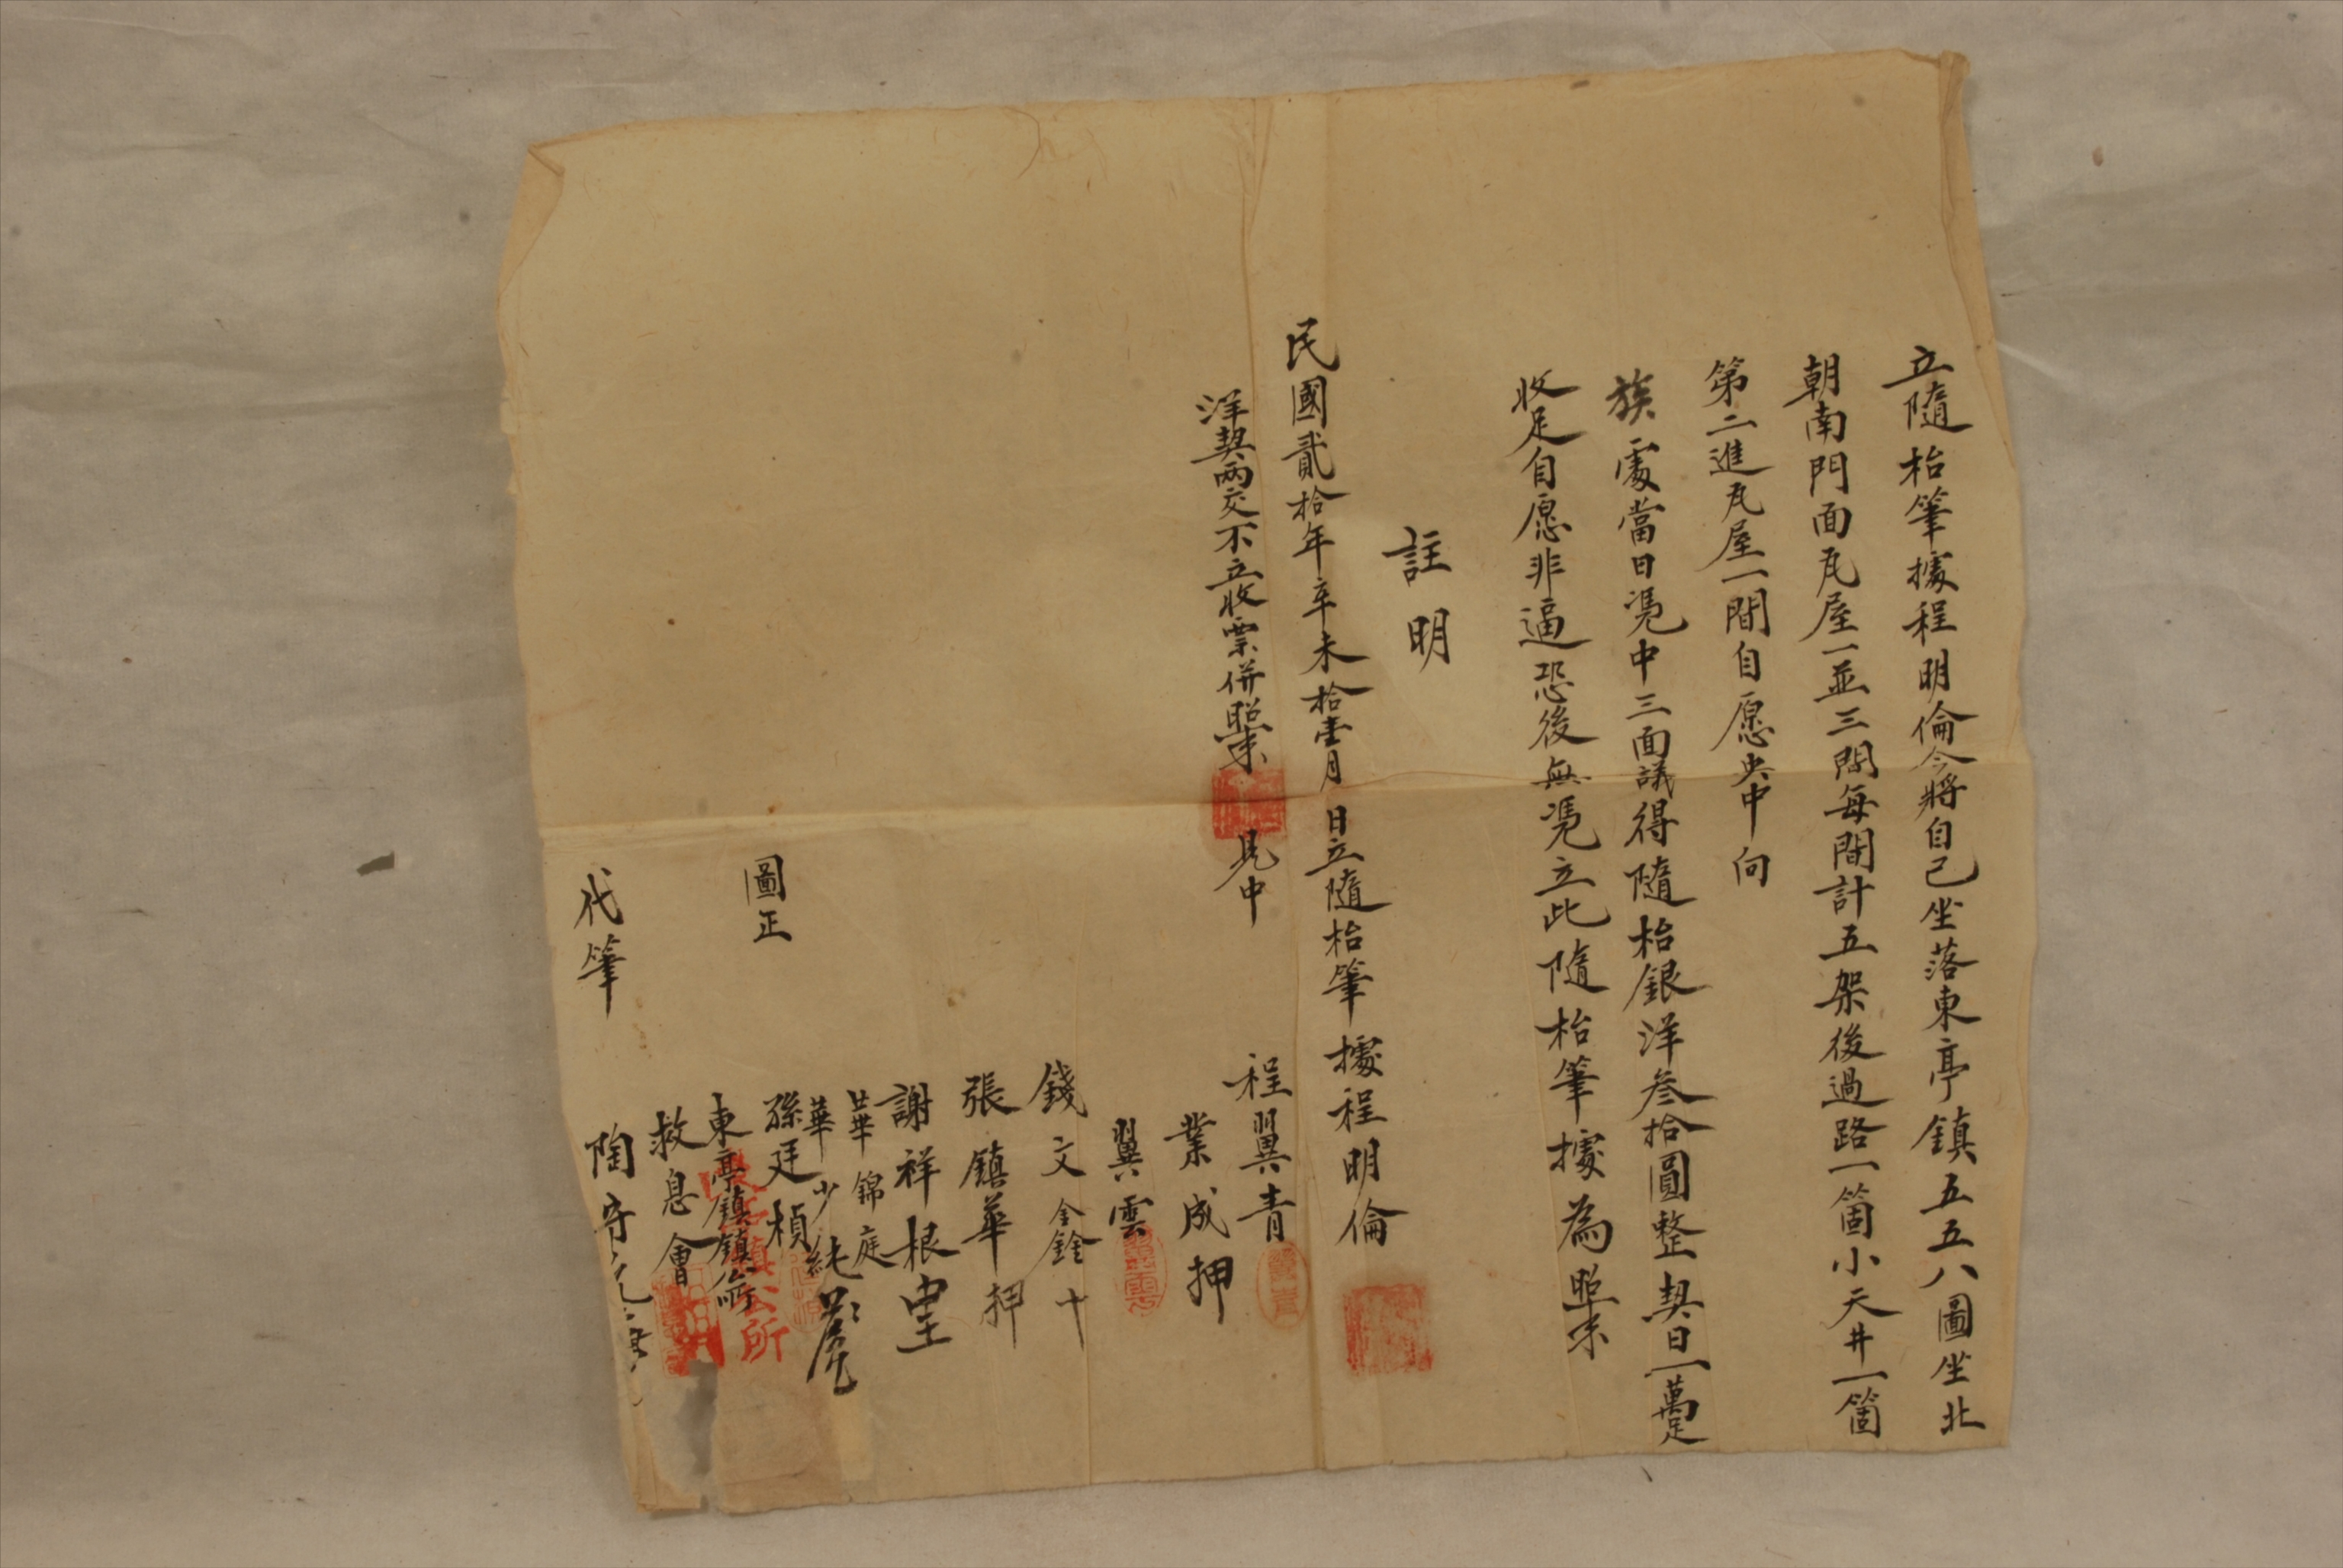 立隨枱筆據程明倫今將自己坐落東亭鎮五五八圖坐北
朝南門面瓦屋一並三間每間計五架後過路一箇小天井一箇
第二進瓦屋一間自愿央中向
族處當日凴中三面議得隨枱銀洋叁拾圓整契日一躉足
收足自愿非逼恐後無凴立此隨枱筆據為照
註明
民國貳拾年辛未拾壹月 日立隨枱筆據程明倫
洋契兩交不立收票併照 見中
程翼青
業成押
翼雲
錢文金銓十
張鎮華押
謝祥根
華錦庭
華少純
圖正 孫廷楨
東亭鎮鎮
救息會
代筆 陶守
鎮公所